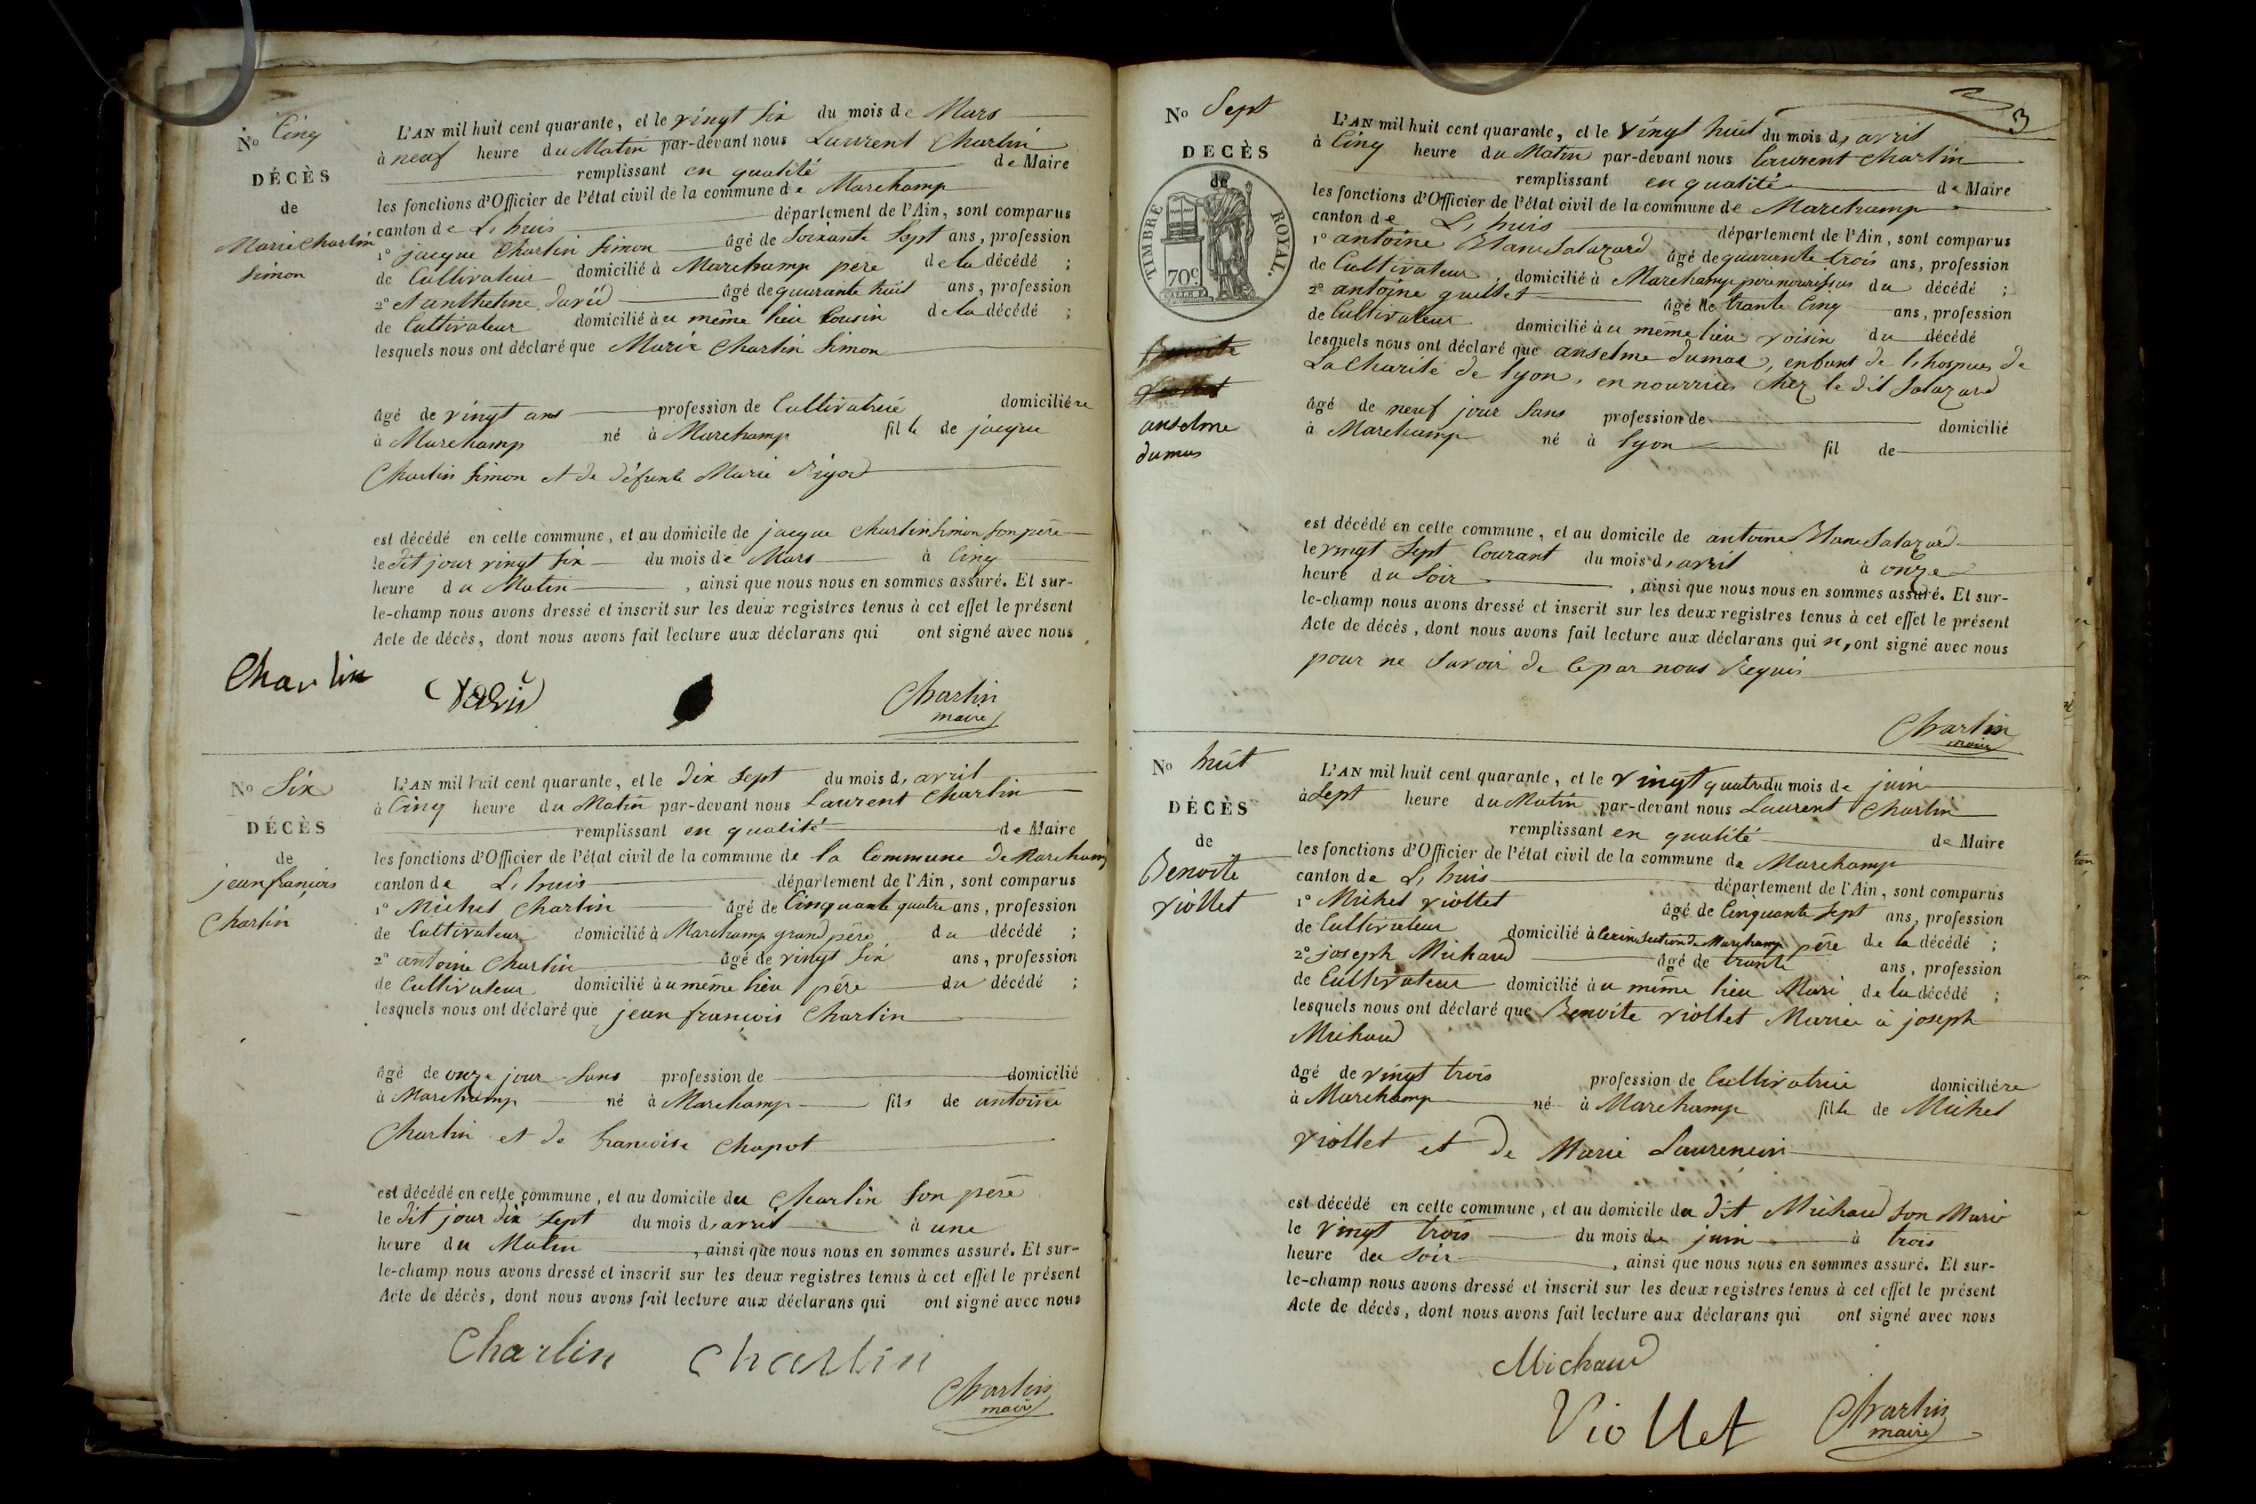 No Cinq
DÉCÈS
de
Marie Charlin
Simon
L'AN mil huit cent quarante, et le vingt six du mois de Mars
à neuf heure du Matin par-devant nous Laurent Charlin
remplissant en qualité de Maire
les fonctions d'Officier de l'état civil de la commune de Marchamp
canton de L, huis département de l'Ain, sont comparus
1º jacque Charlin Simon âgé de Soixante Sept ans, profession
de Cultivateur domicilié à Marchamp père de la décédé ;
2º et anthelme david âgé de quarante huit ans, profession
de Cultivateur domicilié àu même lieu Cousin de la décédé ;
lesquels nous ont déclaré que Marie Charlin Simon
âgé de vingt ans profession de Cultivatrice domiciliére
à Marchamp né à Marchamp fille de jacque
Charlin Simon et de défunte Marie Rigod
est décédé en cette commune, et au domicile de jacque Charlin Simon Son père
le dit jour vingt Six du mois de Mars à Cinq
heure du Matin , ainsi que nous nous en sommes assuré. Et sur-
le-champ nous avons dressé et inscrit sur les deux registres tenus à cet effet le présent
Acte de décès, dont nous avons fait lecture aux déclarans qui ont signé avec nous
Charlin
David
Charlin
maire
No Six
DÉCÈS
de
jean françois
Charlin
L'AN mil huit cent quarante, et le Dix Sept du mois d, avril
à Cinq heure du Matin par-devant nous Laurent Charlin
remplissant en qualité de Maire
les fonctions d'Officier de l'état civil de la commune de la Commune de Marchamp
canton de L, huis département de l'Ain, sont comparus
1º Michel Charlin âgé de Cinquante quatre ans, profession
de Cultivateur domicilié à Marchamp grand père du décédé ;
2º antoine Charlin âgé de vingt Six ans, profession
de Cultivateur domicilié àu même lieu père du décédé ;
lesquels nous ont déclaré que jean françois Charlin
âgé de onze jour Sans profession de domicilié
à Marchamp né à Marchamp fils de antoine
Charlin et de françoise Chapot
est décédé en cette commune, et au domicile du Charlin Son père
le dit jour dix Sept du mois d, avril à une
heure du Matin , ainsi que nous nous en sommes assuré. Et sur-
le-champ nous avons dressé et inscrit sur les deux registres tenus à cet effet le présent
Acte de décès, dont nous avons fait lecture aux déclarans qui ont signé avec nous
Charlin Charlin
Charlin
maire
3
No Sept
DECÈS
de
TIMBRE ROYAL.
70c
Benoite
Viollet
anselme
dumas
L'AN mil huit cent quarante, et le Vingt huit du mois d, avril
à Cinq heure du Matin par-devant nous Laurent Charlin
remplissant en qualité de Maire
les fonctions d'Officier de l'état civil de la commune de Marchamp
canton de L, huis département de l'Ain, sont comparus
1º antoine Blanc Salazard âgé de quarante trois ans, profession
de Cultivateur, domicilié à Marchamp père nourissier du décédé ;
2º antoine guillet âgé de trante Cinq ans, profession
de Cultivateur domicilié àu même lieu voisin du décédé
lesquels nous ont déclaré que anselme dumas, enfant de l, hospice de
La Charité de lyon, en nourrice Chez le dit Salazard
âgé de neuf jour Sans profession de domicilié
à Marchamp né à lyon fil de
est décédé en cette commune, et au domicile de antoine Blanc Salazard
le vingt Sept Courant du mois d, avril à onze
heure du Soir , ainsi que nous nous en sommes assuré. Et sur-
le-champ nous avons dressé et inscrit sur les deux registres tenus à cet effet le présent
Acte de décès, dont nous avons fait lecture aux déclarans qui n, ont signé avec nous
pour ne Savoir de Ce par nous Requis
Charlin
maire
No huit
DÉCÈS
de
Benoite
viollet
L'AN mil huit cent quarante, et le vingt quatre du mois de juin
à Sept heure du Matin par-devant nous Laurent Charlin
remplissant en qualité de Maire
les fonctions d'Officier de l'état civil de la commune de Marchamp
canton de L, huis département de l'Ain, sont comparus
1º Michel viollet âgé de Cinquante Sept ans, profession
de Cultivateur domicilié à Cerin Section de Marchamp père de la décédé ;
2º joseph Michaud âgé de trante ans, profession
de Cultivateur domicilié àu même lieu Mari de la décédé ;
lesquels nous ont déclaré que Benoite viollet Mariée à joseph
Michaud
âgé de vingt trois profession de Cultivatrice domiciliére
à Marchamp né à Marchamp fille de Michel
viollet et de Marie Laurencin
est décédé en cette commune, et au domicile du dit Michaud Son Mari
le vingt trois du mois de juin à trois
heure du Soir , ainsi que nous nous en sommes assuré. Et sur-
le-champ nous avons dressé et inscrit sur les deux registres tenus à cet effet le présent
Acte de décès, dont nous avons fait lecture aux déclarans qui ont signé avec nous
Michaud
Viollet
Charlin
maire